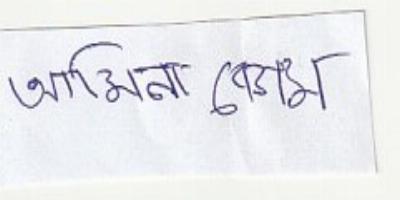 আমিনা বেগম